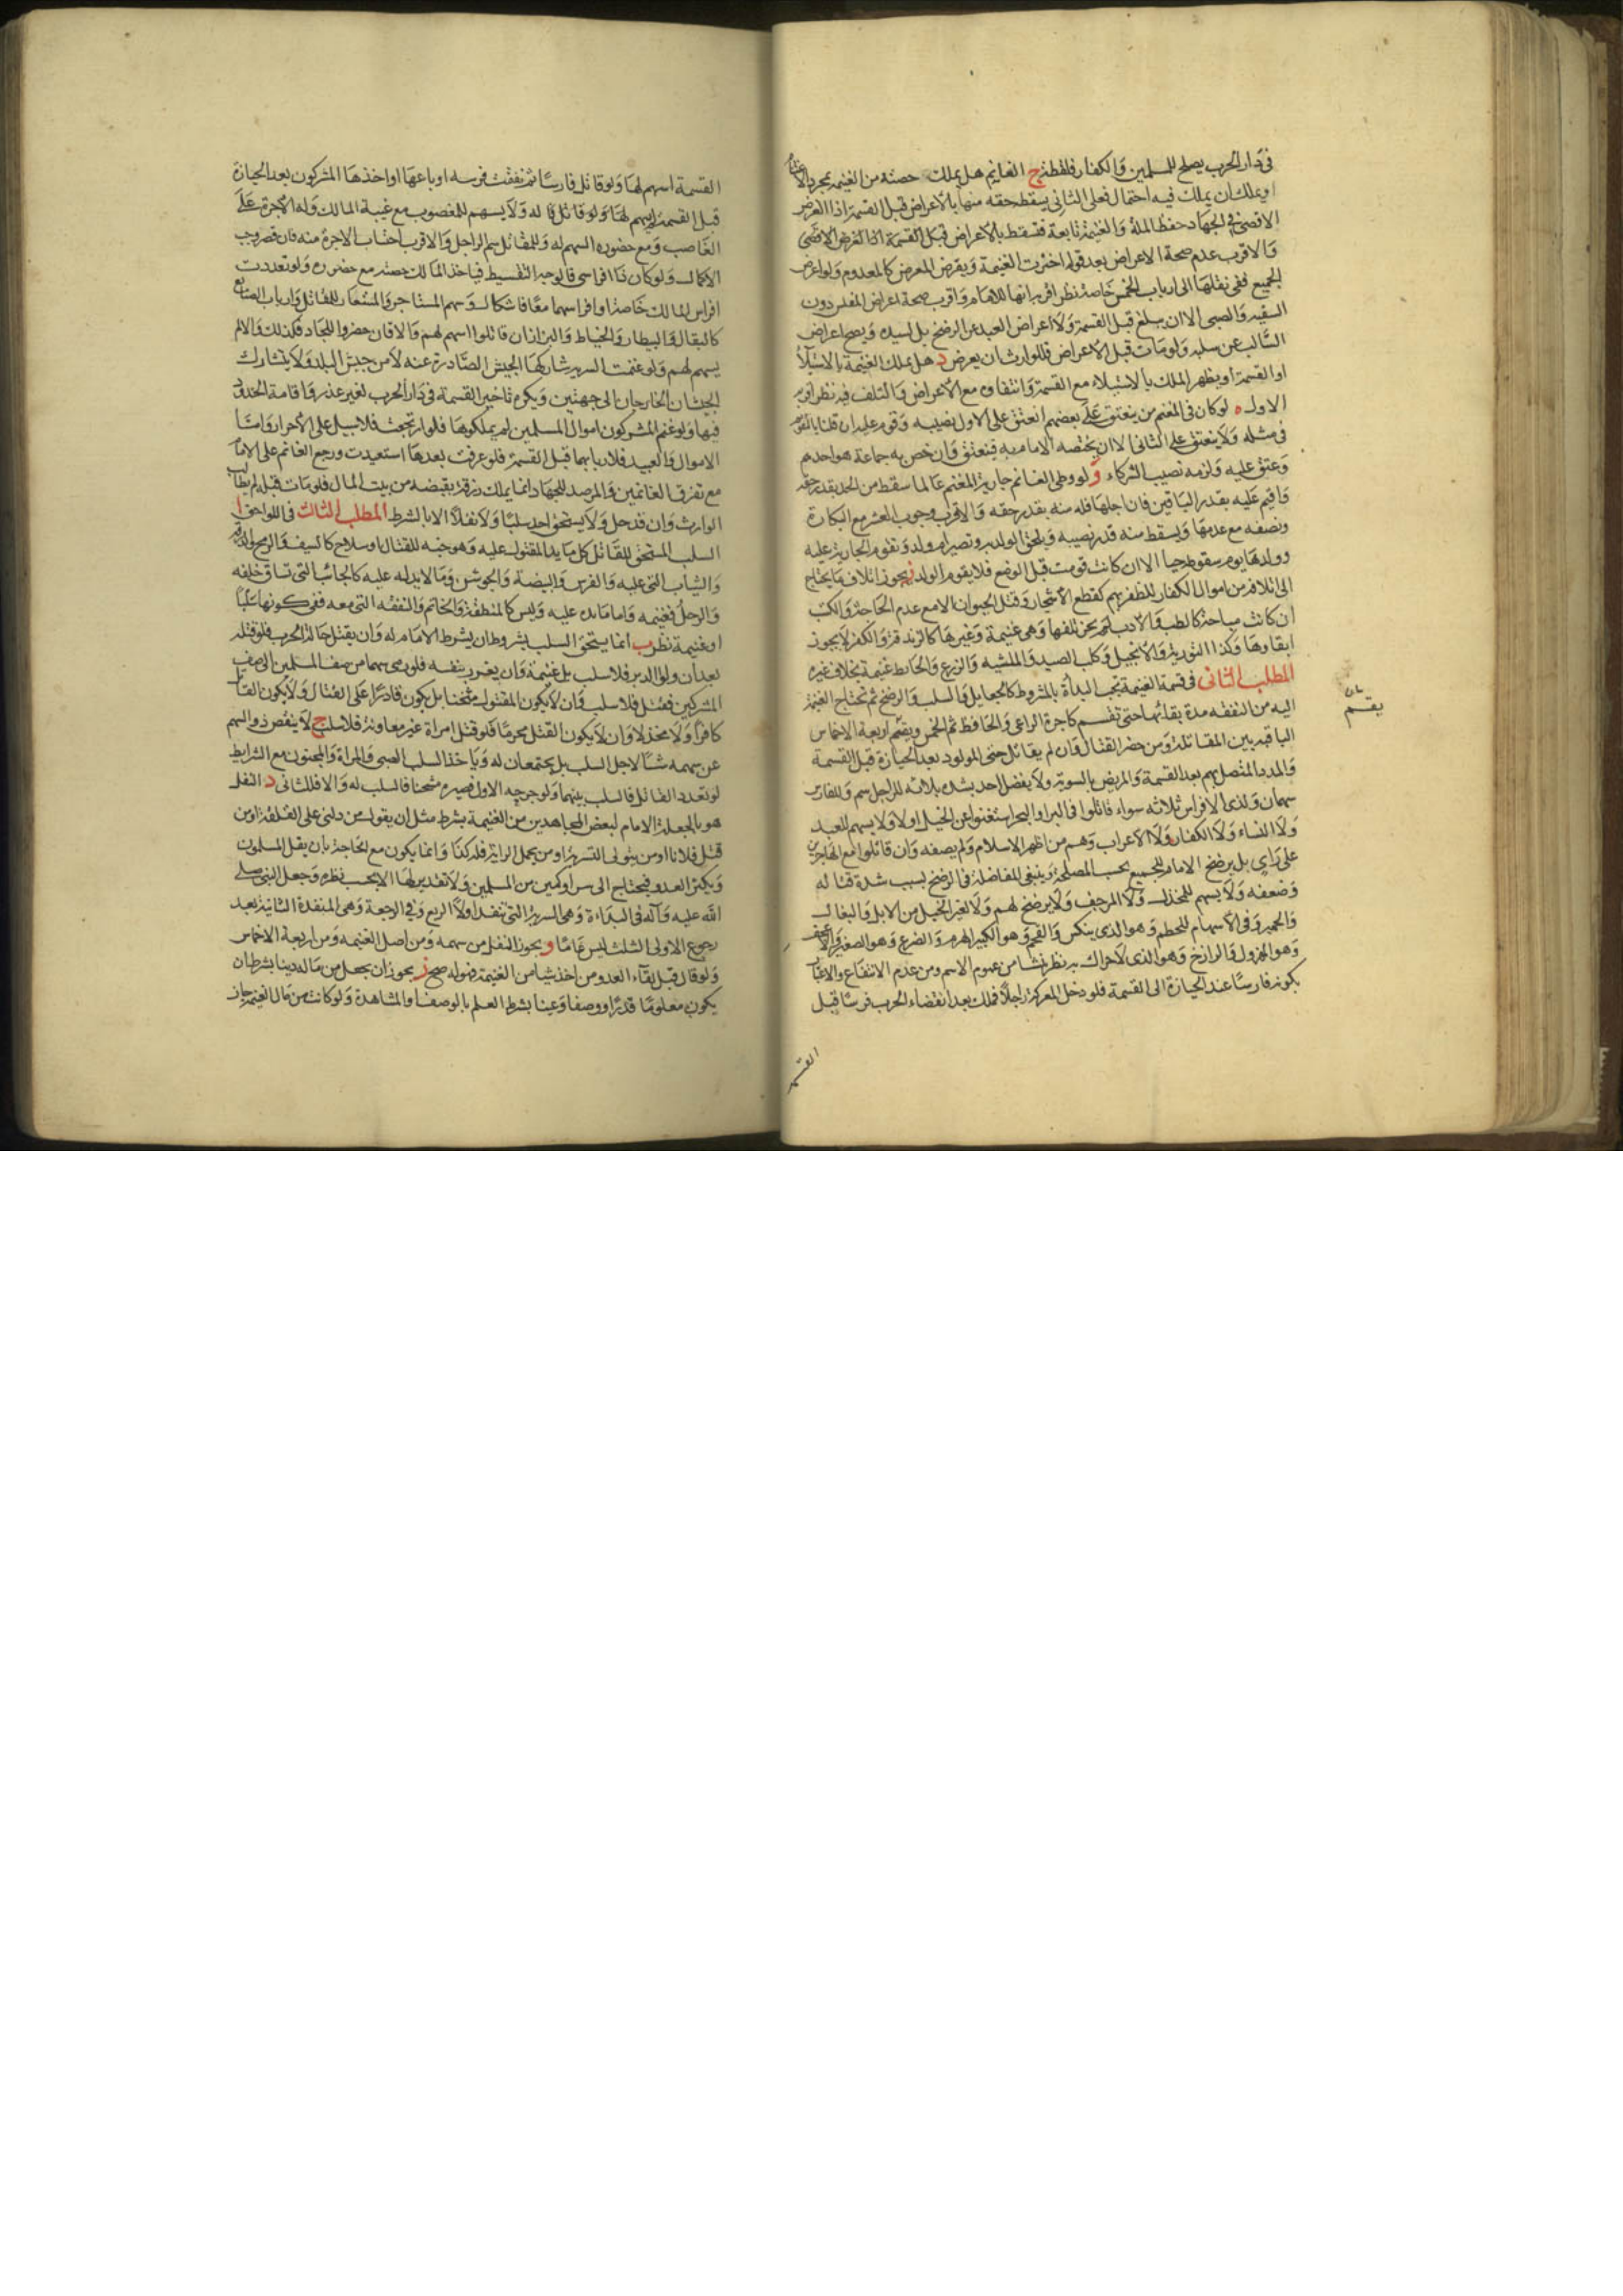 في دار الحرب يصلح للمسلمين والكفار فلقطة ج الغانم هل يملك حصته من الغنيمة بمجرد الاغتنام
او يملك ان يملك فيه احتمال فعلى الثاني يسقط حقه منها بالأعراض قبل القسمة اذا الغرض
الاقصى في الجهاد حفظ الملة والغنيمة تابعة فتسقط بالأعراض قبل القسمة اذا الغرض الاقصى
والاقرب عدم صحة الاعراض بعد قوله اخترت الغنيمة ويفرض المعرض كالمعدوم ولو اعرض
الجميع ففي نقلها الى ارباب الخمس خاصة نظر اقربه انها للامام واقرب صحة اعراض المفلس دون
السفيه والصبي الا ان يبلغ قبل القسمة ولا اعراض العبد عن الرضخ بل لسيده ويصح اعراض
السالب عن سلبه ولو مات قبل الاعراض فللوارث ان يعرض د هل يملك الغنيمة بالاستيلاء
او القسمة او يظهر الملك بالاستيلاء مع القسمة وانتفاوه مع الاعراض والتلف فيه نظر اقربه
الاول ه لو كان في المغنم من ينعتق على بعضهم انعتق على الاول نصيبه وقوم عليه ان قلنا بالتقويم
في مثله ولا ينعتق على الثاني الا ان يخصه الامام به فينعتق وان خص به جماعة هو احدهم
وعتق عليه ولزمه نصيب الشركاء و لو وطى الغانم جارية المغنم عالما سقط من الحد بقدر حقه
واقيم عليه بقدر الباقين فان احبلها فله منه بقدر حقه والاقرب وجوب العشر مع البكارة
ونصفه مع عدمها ويسقط منه قدر نصيبه ويلحق الولد به وتصير ام ولد وتقوم الجارية عليه
وولدها يوم سقوطه حيا الا ان كانت قومت قبل الوضع فلا يقوم الولد ز يجوز اتلاف ما يحتاج
الى اتلافه من اموال الكفار للظفر بهم كقطع الأشجار وقتل الحيوان الا مع عدم الحاجة والكتب
ان كانت مباحة كالطب والادب لم يجز تلفها وهي غنيمة وغيرها كالزندقة والكفر لا يجوز
ابقاوها وكذا التورية والانجيل وكلب الصيد والماشية والزرع والحائط غنيمة بخلاف غيره
المطلب الثاني في قسمة الغنيمة تجب البدأة بالمشروط كالجعايل والسلب والرضخ ثم تحتاج الغنيمة
اليه من النفقة مدة بقائها حتى تقسم كاجرة الراعي والحافظ ثم الخمس ويقسم اربعة الاخماس
الباقية بين المقاتلة ومن حضر القتال وان لم يقاتل حتى المولود بعد الحيازة قبل القسمة
والمدد المتصل بهم بعد القسمة والمريض بالسوية ولا يفضل احد بشدة بلائه للراجل سهم وللفارس
سهمان ولذي الافراس ثلاثه سواء قاتلوا في البر او البحر استغنوا عن الخيل اولا ولا يسهم للعبيد
ولا النساء ولا الكفار ولا الأعراب وهم من اظهر الاسلام ولم يصفه وان قاتلوا مع المهاجرين
على راي بل يرضخ الامام للجميع بحسب المصلحة وينبغي المفاضلة في الرضخ بسبب شدة قتاله
وضعفه ولا يسهم للمخذل ولا المرجف ولا يرضخ لهم ولا لغير الخيل من الابل والبغال
والحمير وفي الأسهام للحطم وهو الذي ينكس والقحم وهو الكبير الهرم والضرع وهو الصغير والاعجف
وهو المهزول والرازخ وهو الذي لا حراك به نظر نشا من عموم الاسم ومن عدم الانتفاع والاعتبار
بكونه فارسا عند الحيازة الى القسمة فلو دخل المعركة راجلا فملك بعد انقضاء الحرب فرسا قبل
القسمة
يقسم
القسمة اسهم لها ولو قاتل فارسا ثم نفقت فرسه او باعها او اخذها المشركون بعد الحيازة
قبل القسمة اسهم لها ولو قاتل قا له ولا يسهم للمغصوب مع غيبة المالك وله الأجرة على
الغاصب ومع حضوره السهم له وللمقاتل سهم الراجل والاقرب احتساب الاجرة منه فان قصر وجب
الاكمال ولو كان ذا افراس قالوجه التقسيط فياخذ المالك حصته مع حضوره ولو تعددت
افراس المالك خاصة او افراسهما معا فاشكال وسهم المستاجر والمستعار للمقاتل وارباب الصنايع
كالبقال والبيطار والخياط والبزاز ان قاتلوا اسهم لهم والا فان حضروا للجهاد فكذلك والا لم
يسهم لهم ولو غنمت السرية شاركها الجيش الصادرة عنه لا من جيش البلد ولا يتشارك
الجيشان الخارجان الى جهتين ويكره تاخير القسمة في دار الحرب لغير عذر واقامة الحدود
فيها ولو غنم المشركون اموال المسلمين لم يملكوها فلو ارتجعت فلا سبيل على الأحرار واما
الاموال والعبيد فلاربابها قبل القسمة فلو عرفت بعدها استعيدت ورجع الغانم على الامام
مع تفرق الغانمين والمرصد للجهاد انما يملك رزقه بقبضه من بيت المال فلو مات قبله لم يطالب
الوارث وان قد حل ولا يستحق احد سلبا ولا نفلا الا بالشرط المطلب الثالث في اللواحق ا
السلب المستحق للقاتل كل ما يد المقتول عليه وهو جنبة للقتال او سلاح كالسيف والرمح والدرقة
والثياب التي عليه والفرس والبيضة والجوشن وما لا يد له عليه كالجنائب التي تساق خلفه
والرحل فغنيمه واما ما يده عليه وليس كالمنطقة والخاتم والنفقه التي معه ففي كونها سلبا
او غنيمة نظر ب انما يستحق السلب بشروط ان يشرط الامام له وان يقتل حالة الحرب فلو قتله
بعد ان ولوا الدبر فلا سلب بل غنيمة وان يغرر بنفسه فلو رمى سهما من صف المسلمين الى صف
المشركين فقتل فلا سلب وان لا يكون المقتول مثخنا بل يكون قادرا على القتال ولا يكون القاتل
كافرا ولا مخذلا وان لا يكون القتل محرما فلو قتل امراة غير معاونة فلا سلب ج لا ينقص ذو السهم
عن سهمه شيئا لاجل السلب بل يجتمعان له وياخذ السلب الصبي والمراة والمجنون مع الشرايط
لو تعدد القاتل فالسلب بينهما ولو جرحه الاول فصيره مثخنا فالسلب له والا فللثاني د النفل
هو ما يجعله الامام لبعض المجاهدين من الغنيمة بشرط مثل ان يقول من دلني على القلعة او من
قتل فلانا او من يتولى السرية او من يحمل الراية فله كذا وانما يكون مع الحاجة بان يقل المسلمون
ويكثر العدو فيحتاج الى سرية او كمين من المسلمين ولا تقدير لها الا بحسب نظره وجعل النبي صلى
الله عليه وآله في البداءة وهي السرية التي تنفذ اولا الربع وفي الرجعة وهي المنفذة الثانية بعد
رجوع الاولى الثلث ليس عاما و يجوز النفل من سهمه ومن اصل الغنيمه ومن اربعة الاخماس
ولو قال قبل لقآء العدو من اخذ شيا من الغنيمة فهو له صح ز يجوز ان يجعل من ماله دينا بشرط ان
يكون معلوما قدرا ووصفا وعينا بشرط العلم بالوصف او المشاهدة ولو كانت من مال الغنيمة جاز